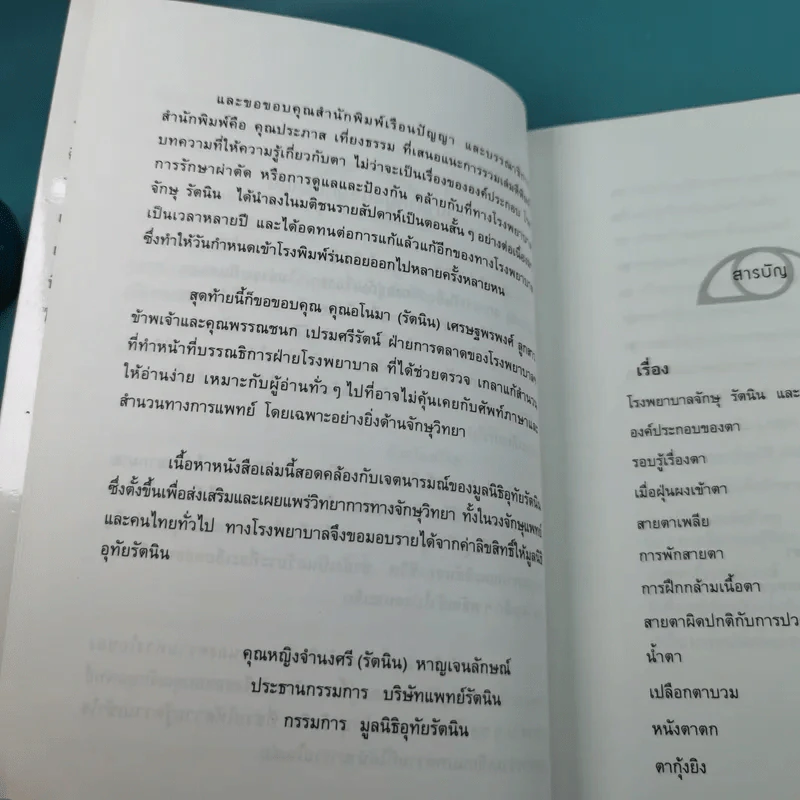 และขอขอบคุณสำนักพิมพ์เรือนปัญญา และบรรณาธิการ
สำนักพิมพ์คือ คุณประภาส เที่ยงธรรม ที่เสนอแนะการรวมเล่มตีพิมพ์
บทความที่ให้ความรู้เกี่ยวกับตา ไม่ว่าจะเป็นเรื่องขององค์ประกอบ
การรักษาผ่าตัด หรือการดูแลและป้องกัน คล้ายกับที่ทางโรงพยาบาล
จักษุ รัตนิน ได้นำลงในมติชนรายสัปดาห์เป็นตอนสั้น ๆ อย่างต่อเนื่อง
เป็นเวลาหลายปี และได้อดทนต่อการแก้แล้วแก้อีกของทางโรงพยาบาล
ซึ่งทำให้วันกำหนดเข้าโรงพิมพ์ร่นถอยออกไปหลายครั้งหลายหน
สุดท้ายนี้ก็ขอขอบคุณ คุณอโนมา (รัตนิน) เศรษฐพรพงศ์ ลูกสาว
ข้าพเจ้าและคุณพรรณชนก เปรมศรีรัตน์ ฝ่ายการตลาดของโรงพยาบาลฯ
ที่ทำหน้าที่บรรณธิการฝ่ายโรงพยาบาล ที่ได้ช่วยตรวจ เกลาแก้สำนวน
ให้อ่านง่าย เหมาะกับผู้อ่านทั่ว ๆ ไปที่อาจไม่คุ้นเคยกับศัพท์ภาษาและ
สำนวนทางการแพทย์ โดยเฉพาะอย่างยิ่งด้านจักษุวิทยา
เนื้อหาหนังสือเล่มนี้สอดคล้องกับเจตนารมณ์ของมูลนิธิอุทัยรัตนิน
ซึ่งตั้งขึ้นเพื่อส่งเสริมและเผยแพร่วิทยาการทางจักษุวิทยา ทั้งในวงจักษุแพทย์
และคนไทยทั่วไป ทางโรงพยาบาลจึงขอมอบรายได้จากค่าลิขสิทธิ์ให้มูลนิธิ
อุทัยรัตนิน
คุณหญิงจำนงศรี (รัตนิน) หาญเจนลักษณ์
ประธานกรรมการ บริษัทแพทย์รัตนิน
กรรมการ มูลนิธิอุทัยรัตนิน
สารบัญ
เรื่อง
โรงพยาบาลจักษุ รัตนิน และ
องค์ประกอบของตา
รอบรู้เรื่องตา
เมื่อฝุ่นผงเข้าตา
สายตาเพลีย
การพักสายตา
การฝึกกล้ามเนื้อตา
สายตาผิดปกติกับการปว
น้ำตา
เปลือกตาบวม
หนังตาตก
ตากุ้งยิง